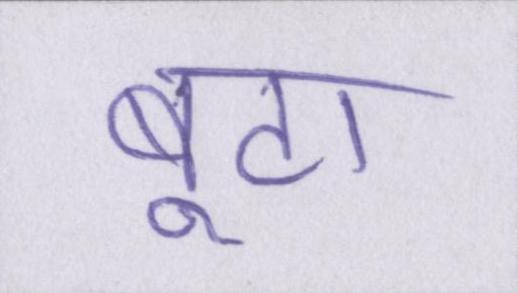 बूटा